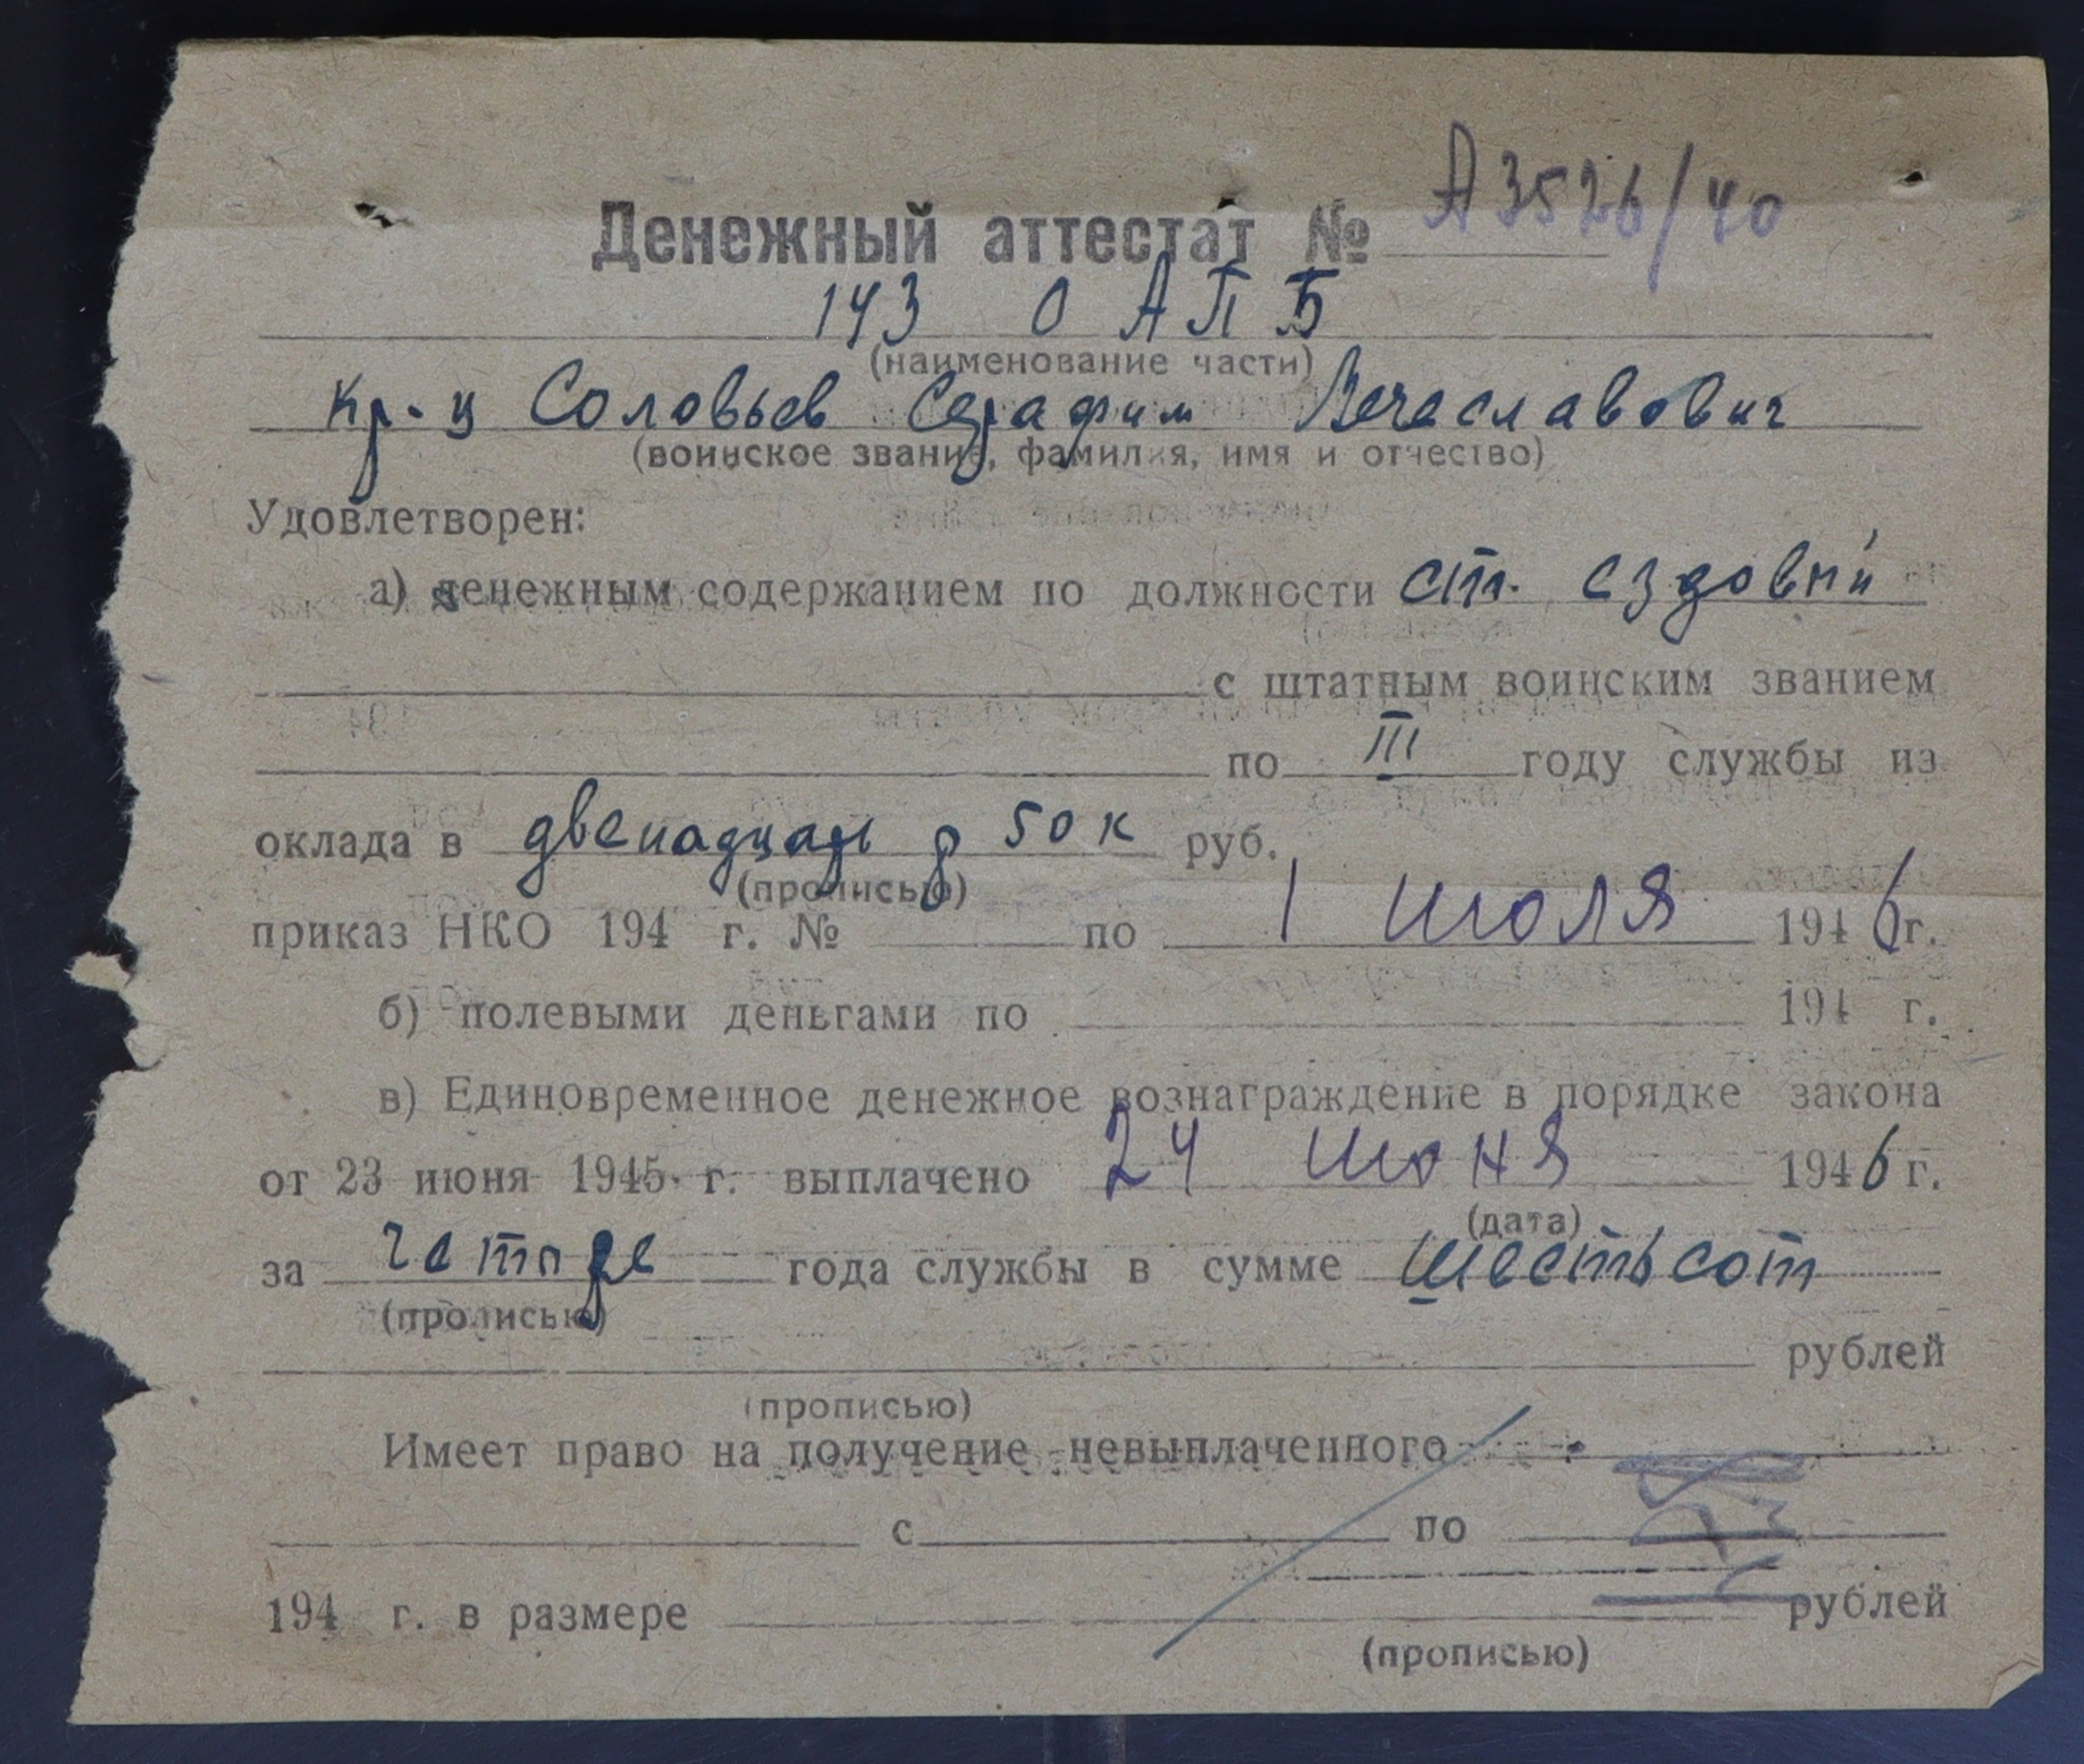 Денежный аттестат № А3526/40
143 О А П Б
(наименование части)
Кр-ц Соловьев Серафим Вечеславович
(воинское звание, фамилия, имя и отчество)
Удовлетворен:
а) денежным содержанием по должности ст. ездовый
с штатным воинским званием
по III году службы из
оклада в двенадцать р 50 к руб.
(прописью)
приказ НКО 194 г. № по 1 июля 1946 г.
б) полевыми деньгами по 194 г.
в) Единовременное денежное вознаграждение в порядке закона
от 23 июня 1945 г. выплачено 24 июня 1946 г.
(дата)
за четыре года службы в сумме шестьсот
(прописью)
рублей
(прописью)
Имеет право на получение невыплаченного
с по
194 г. в размере рублей
(прописью)